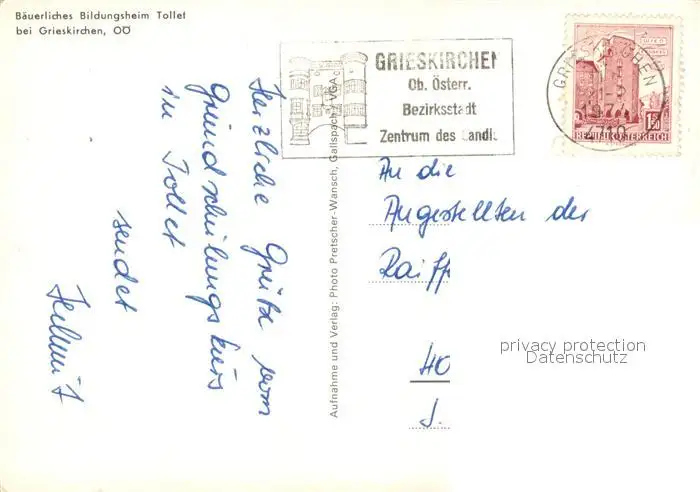 Bäuerliches Bildungsheim Tollet
bei Grieskirchen, OÖ
GRIESKIRCHEN
Ob. Österr.
Bezirksstadt
Zentrum des Landl
GRIESKIRCHEN
4710
1.50
REPUBLIK ÖSTERREICH
Herzliche Grüße vom
Grundschulungskurs
in Tollet
sendet
Helmut
Aufnahme und Verlag: Photo Pretscher-Wansch, Gallspach VGA
An die
Angestellten der
Raiff
40
J.
privacy protection
Datenschutz